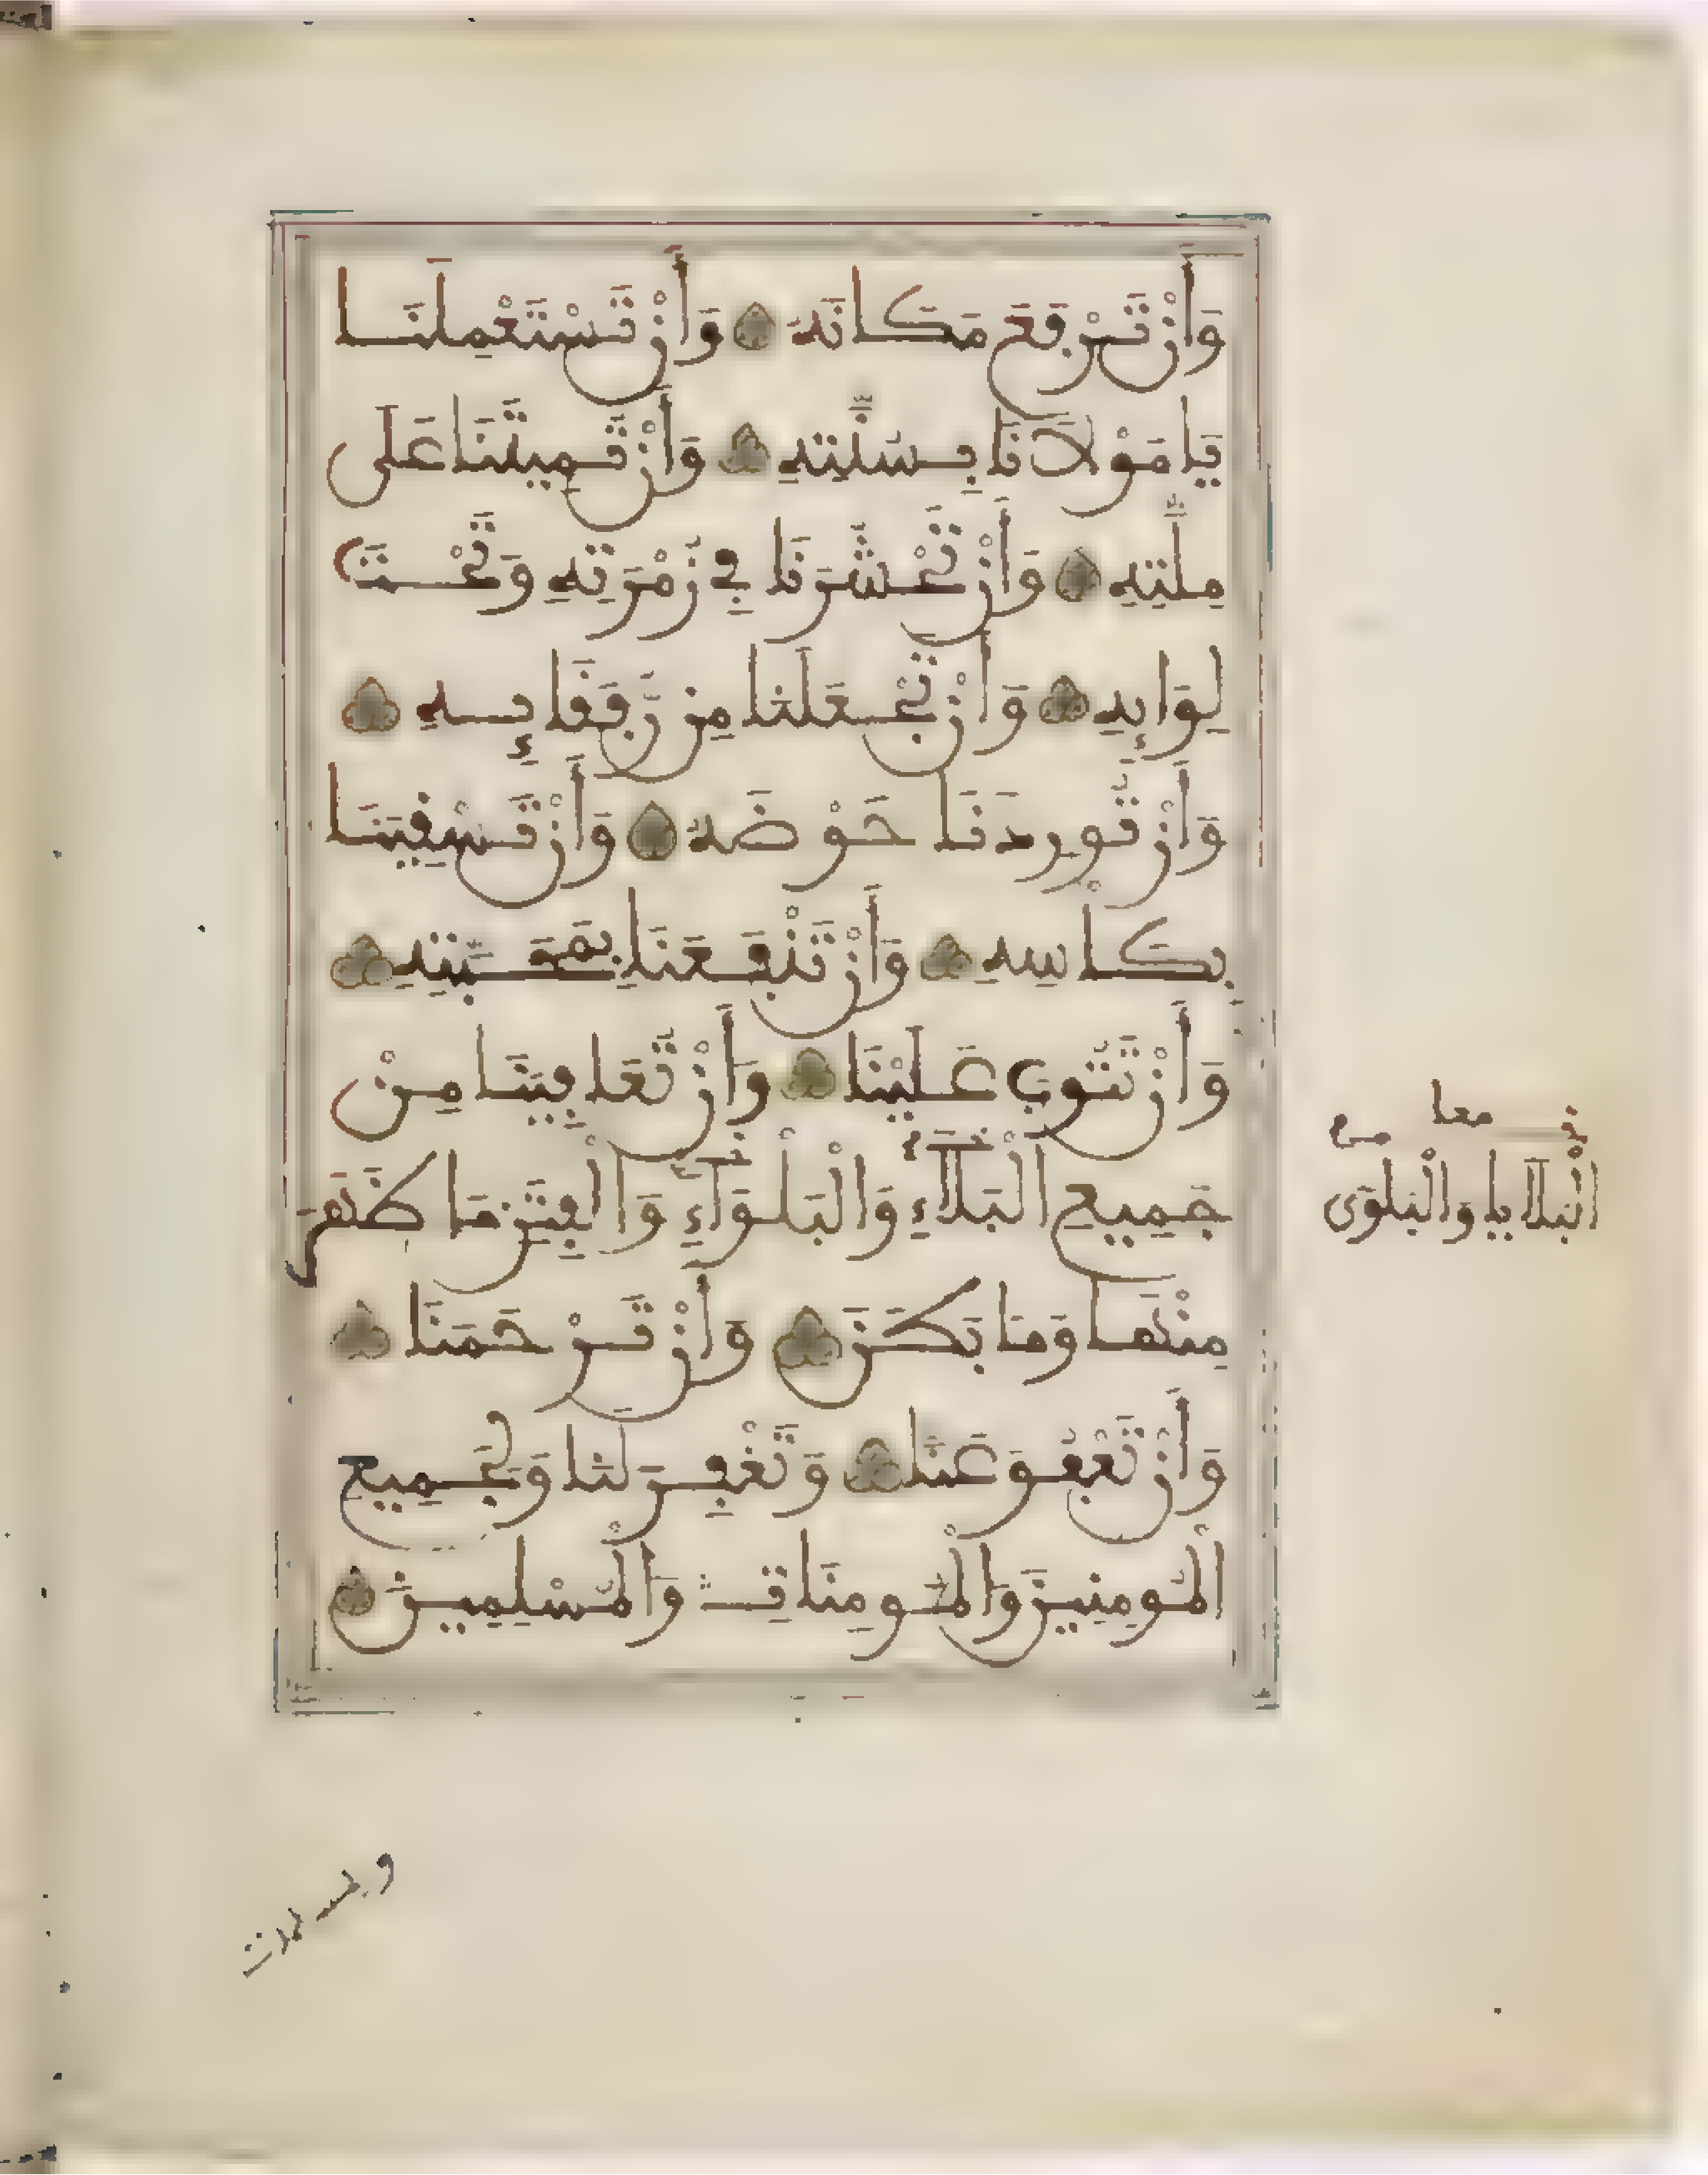 وَأَنْ تَرْفَعَ مَكَانَهُ وَأَنْ تَسْتَعْمِلَنَا
يَا مَوْلَانَا بِسُنَّتِهِ وَأَنْ تُمِيتَنَا عَلَى
مِلَّتِهِ وَأَنْ تَحْشُرَنَا فِي زُمْرَتِهِ وَتَحْتَ
لِوَائِهِ وَأَنْ تَجْعَلَنَا مِن رُّفَقَائِهِ
وَأَنْ تُورِدَنَا حَوْضَهُ وَأَنْ تَسْقِيَنَا
بِكَأْسِهِ وَأَنْ تَنْفَعَنَا بِمَحَبَّتِهِ
وَأَنْ تَتُوبَ عَلَيْنَا وَأَنْ تُعَافِيَنَا مِنْ
جَمِيعِ الْبَلَاءِ وَالْبَلْوَاءِ وَالْفِتَنِ مَا ظَهَرَ
مِنْهَا وَمَا بَطَنَ وَأَنْ تَرْحَمَنَا
وَأَنْ تَعْفُوَ عَنَّا وَتَغْفِرَ لَنَا وَلِجَمِيعِ
الْمُومِنِينَ وَالْمُومِنَاتِ وَالْمُسْلِمِينَ
معا
الْبَلَايَا وَالْبَلْوَى
والمسلمات